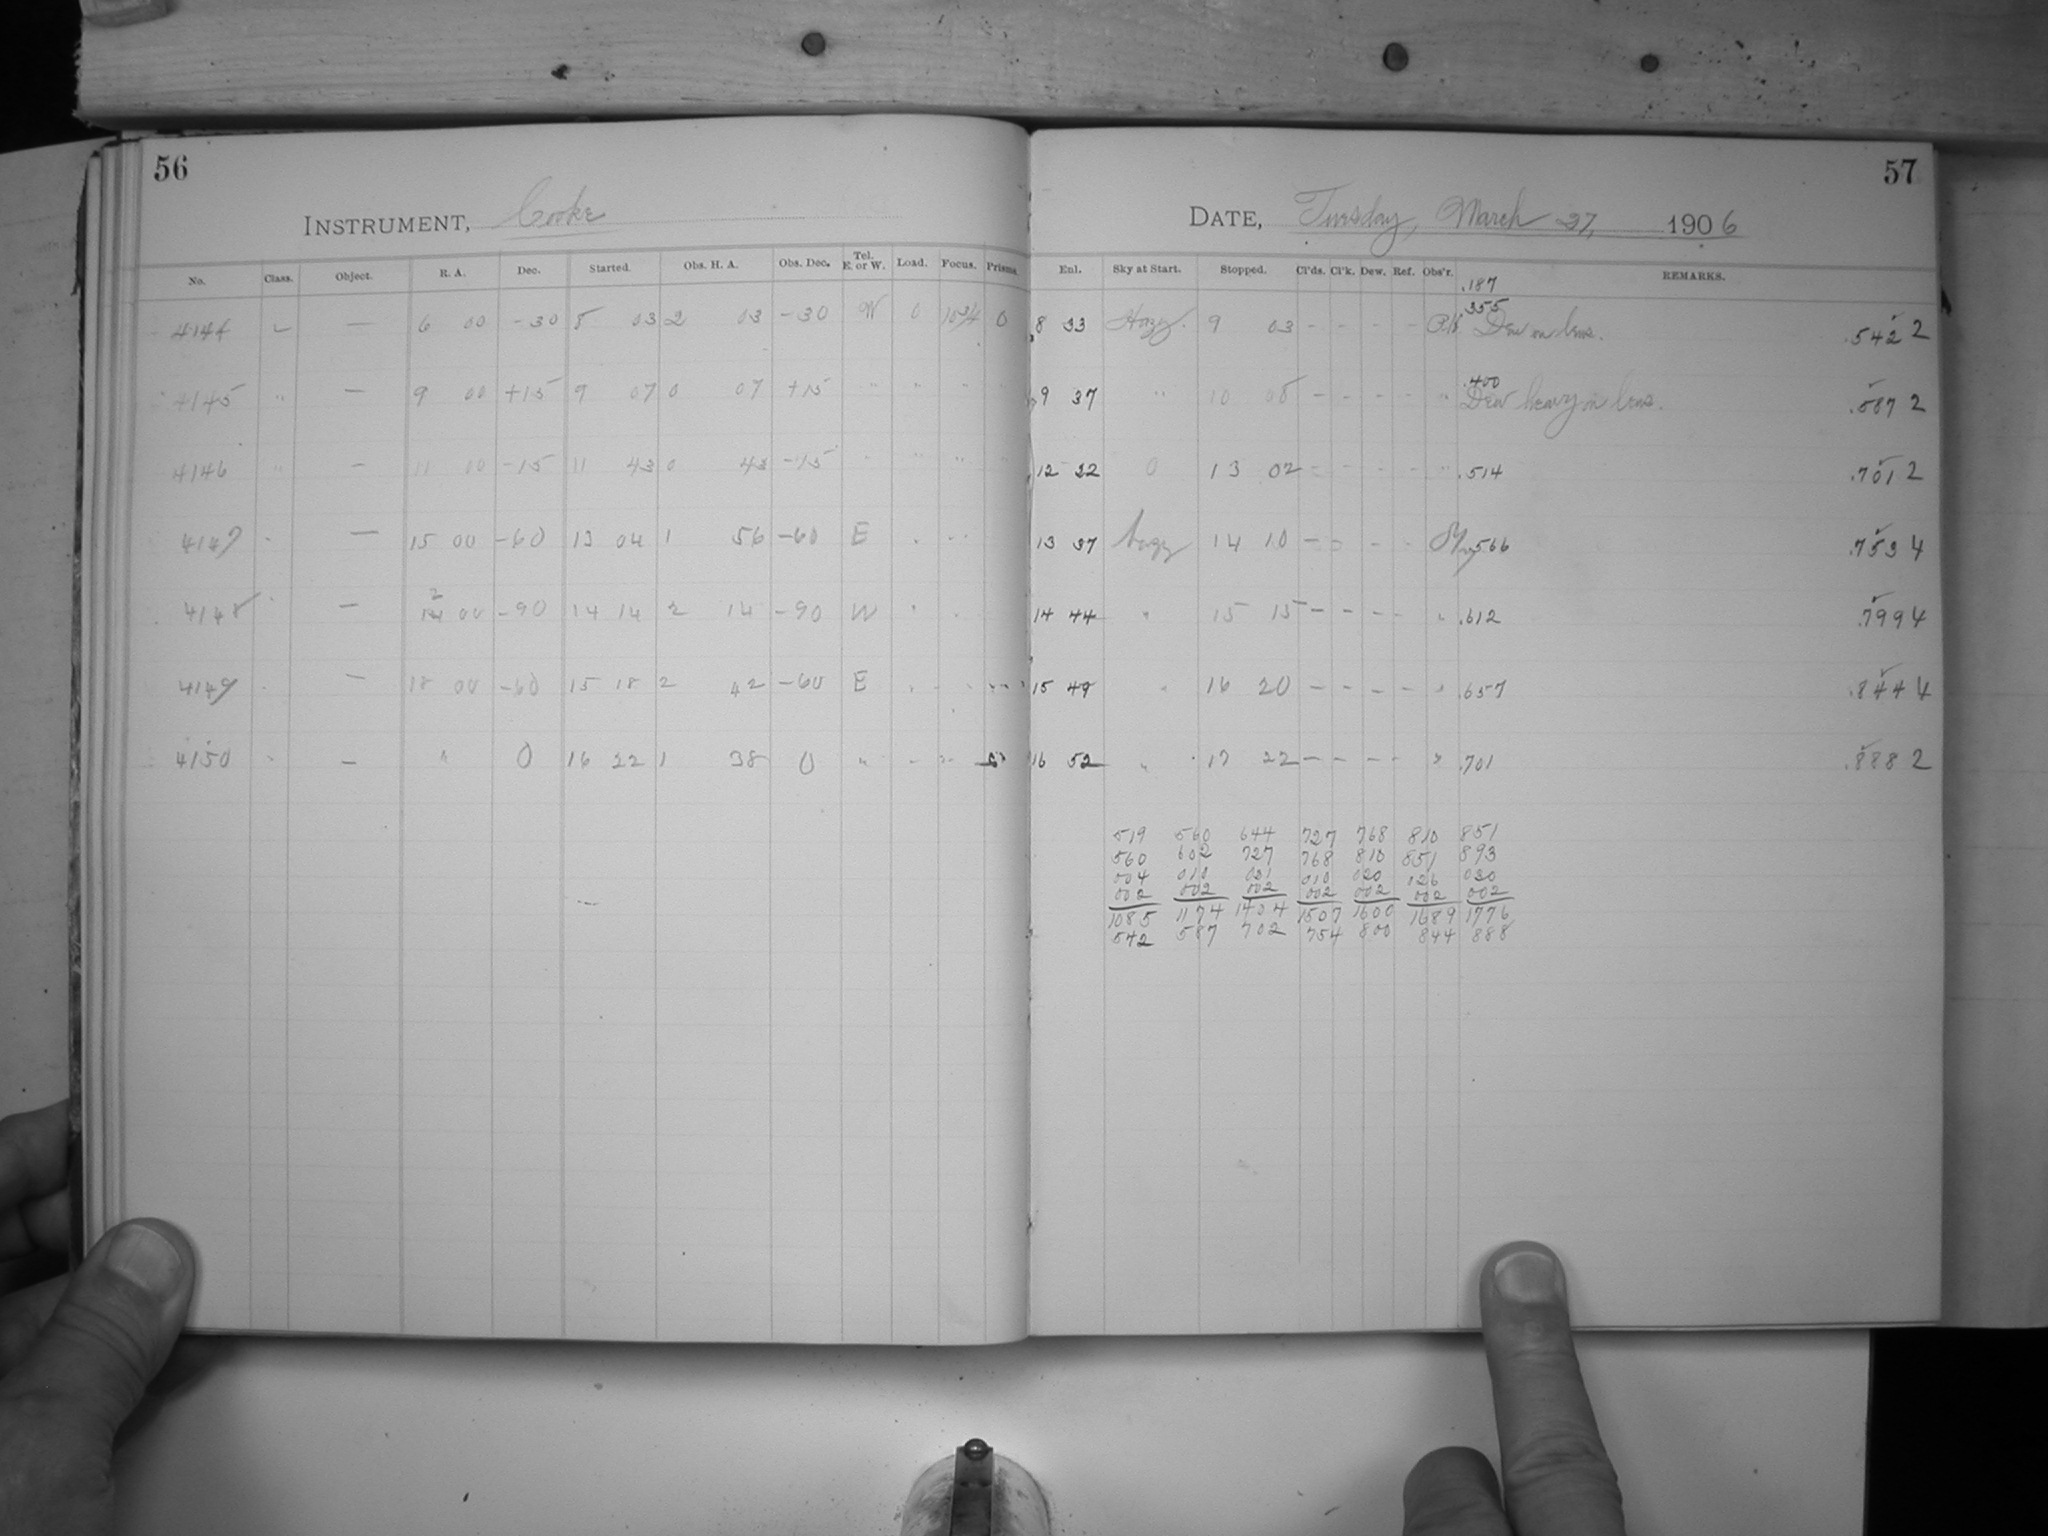 56
INSTRUMENT, Cooke
No. Class. Object. R. A. Dec. Started. Obs. H. A. Obs. Dec. Tel. E. or W. Load. Focus. Prisms.
4144 — 6 00 -30 8 03 2 03 -30 W 0 0
4145 " — 9 00 +15 9 07 0 07 +15 " " " "
4146 " — 11 00 -15 11 43 0 43 -15 " " " "
4147 — 15 00 -60 13 04 1 56 -60 E
4148 — 00 -90 14 14 2 14 -90 W
4149 — 18 00 -60 15 18 2 42 -60 E
4150 — " 0 16 22 1 38 0 "
57
DATE, Tuesday, March 27, 1906
Enl. Sky at Start. Stopped. Cl'ds. Cl'k. Dew. Ref. Obs'r. REMARKS.
.187
.355
8 33 Hazy. 9 03 - - - - Dew on lens. .542 2
.400
9 37 " 10 08 - - - - " Dew heavy on lens. .587 2
12 32 0 13 02 - - - - " .514 .701 2
13 37 hazy 14 10 - - - - .566 .753 4
14 44 " 15 15 - - - - " .612 .799 4
15 49 " 16 20 - - - - " .657 .844 4
16 52 " 17 22 - - - - " .701 .888 2
519 560 644 727 768 810 851
560 602 727 768 810 851 893
004 010 031 010 020 026 030
002 002 002 002 002 002 002
1085 1174 1404 1507 1600 1689 1776
542 587 702 754 800 844 888